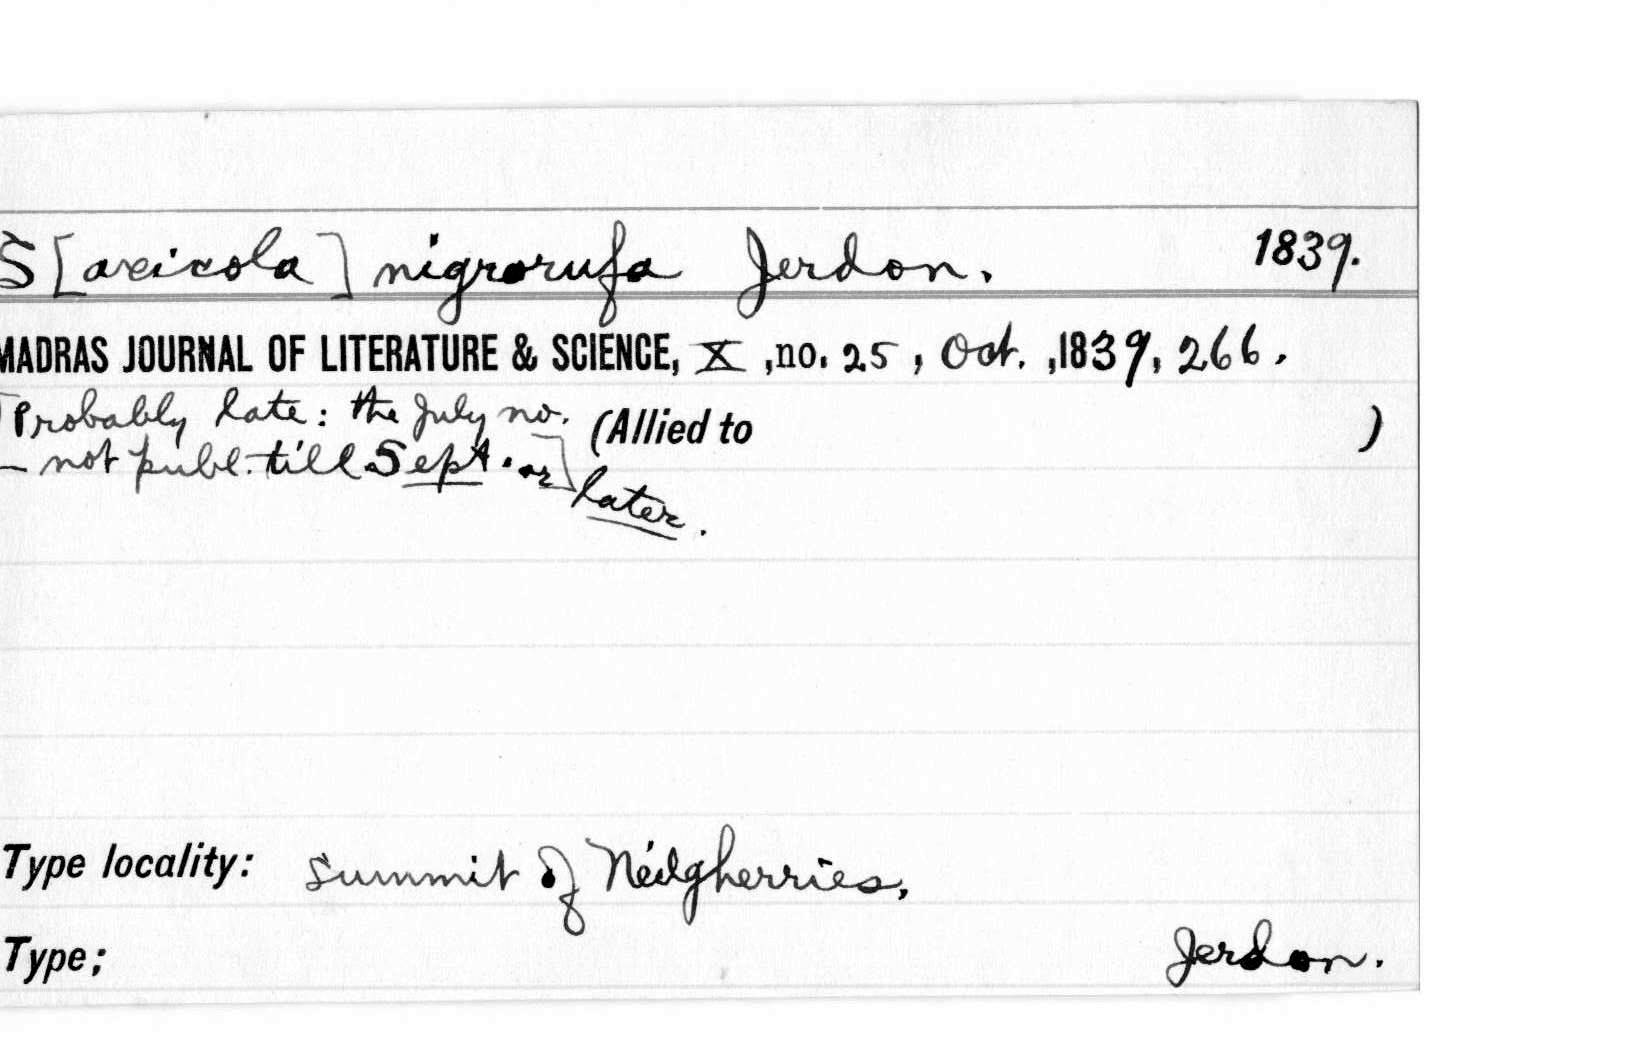 S[axicola] nigrorufa Jerdon. 1839.
MADRAS JOURNAL OF LITERATURE & SCIENCE, X ,no. 25 , Oct. ,1839, 266.
[Probably late: the July no. (Allied to )
— not publ. till Sept. or] later.
Type locality: Summit of Neilgherries,
Type; Jerdon.